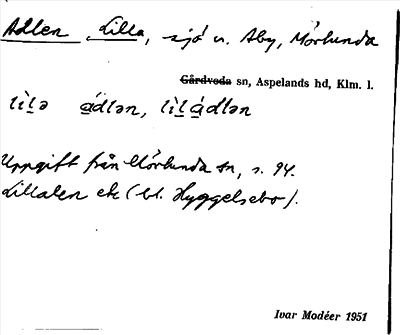 Adlen, Lilla, sjö n. Åby, Mörlunda
Gårdveda sn, Aspelands hd, Klm. l.
lìl̠ə á̠dlən, lìl̠á̠dlən
Uppgift från Mörlunda sn, s. 94.
Lillalen etc (bl. Hyggelsebo).
Ivar Modéer 1951